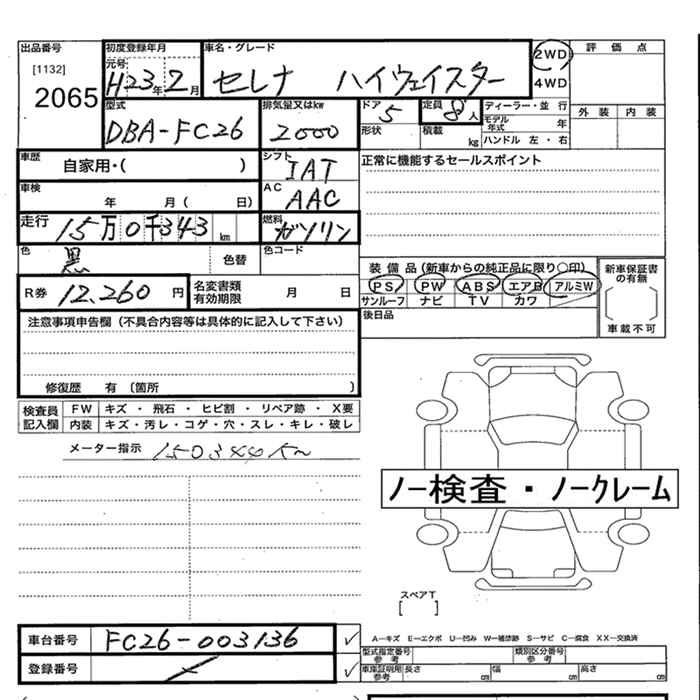 出品番号
[1132]
2065
初度登録年月
元号
H23年2月
車名・グレード
セレナ ハイウェイスター
2WD
4WD
評価点
外装 内装
型式
DBA-FC26
排気量又はkw
2000
ドア
5
形状
定員
8人
積載
kg
ディーラー・並行
モデル年式 年
ハンドル 左・右
車歴
自家用・( )
シフト
IAT
正常に機能するセールスポイント
車検
年 月( 日)
AC
AAC
走行
15万0千343km
燃料
ガソリン
色
黒
色替
色コード
R券 12,260円
名変書類有効期限 月 日
装備品(新車からの純正品に限り○印)
PS PW ABS エアB アルミW
サンルーフ ナビ TV カワ
新車保証書の有無
車載不可
後日品
注意事項申告欄(不具合内容等は具体的に記入して下さい)
修復歴 有(箇所 )
検査員記入欄
FW キズ・飛石・ヒビ割・リペア跡・X要
内装 キズ・汚レ・コゲ・穴・スレ・キレ・破レ
メーター指示 150344K~
ノー検査・ノークレーム
スペアT
[ ]
車台番号 FC26-003136
登録番号
A―キズ E―エクボ U―凹み W―補修跡 S―サビ C―腐食 XX―交換済
型式指定番号
参考
類別区分番号
参考
車庫証明用
参考
長さ cm 幅 cm 高さ cm